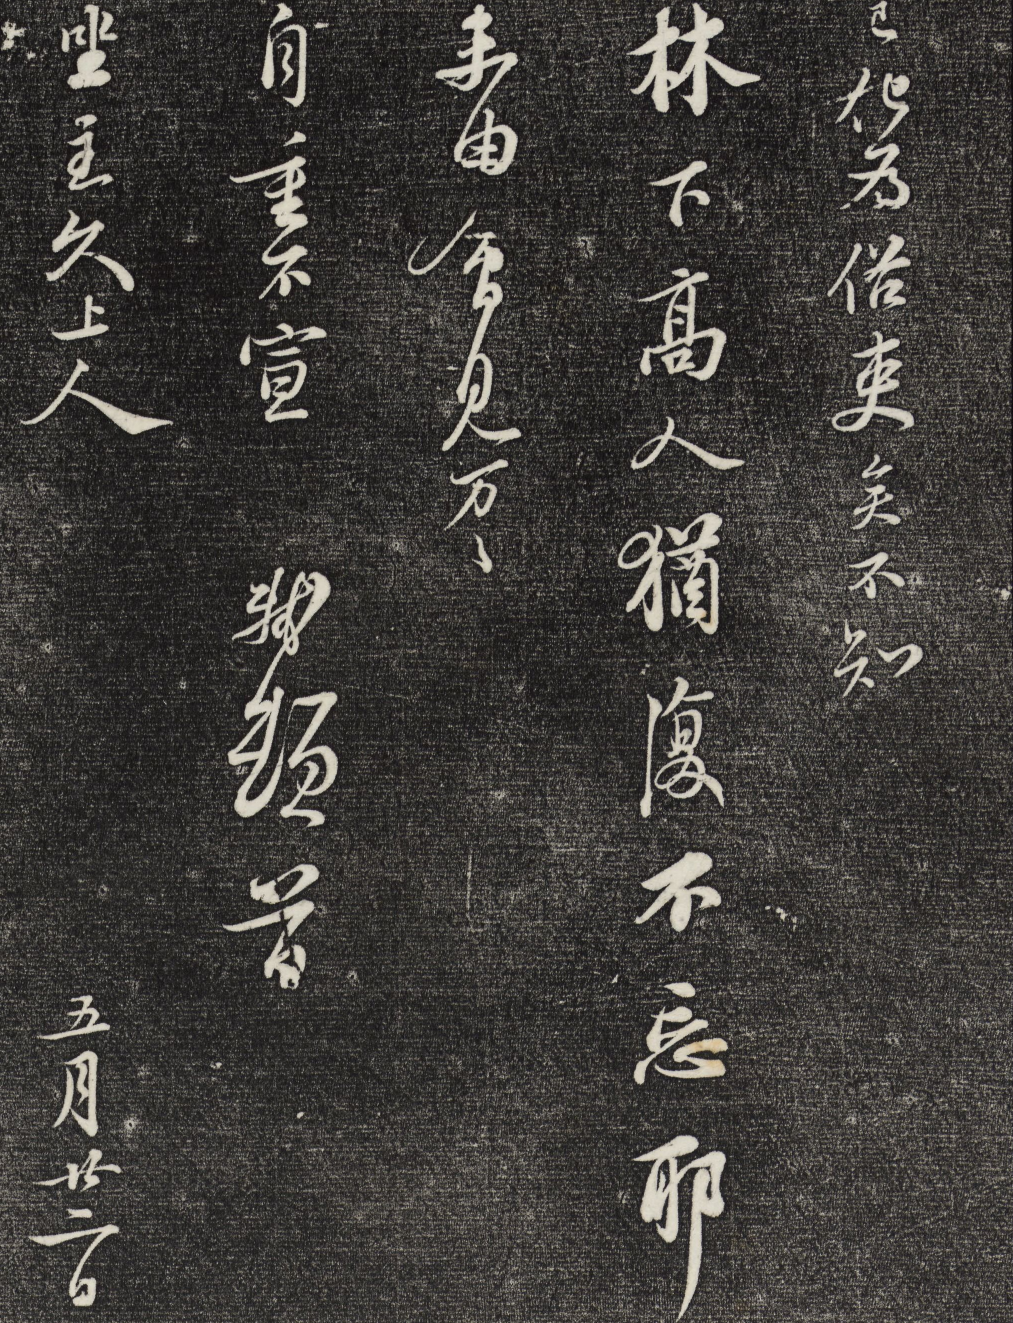 已化為俗吏矣不知
林下髙人猶復不忘耶
未由會見万〻
自重不宣　軾頓首
坐主久上人　五月廿二日